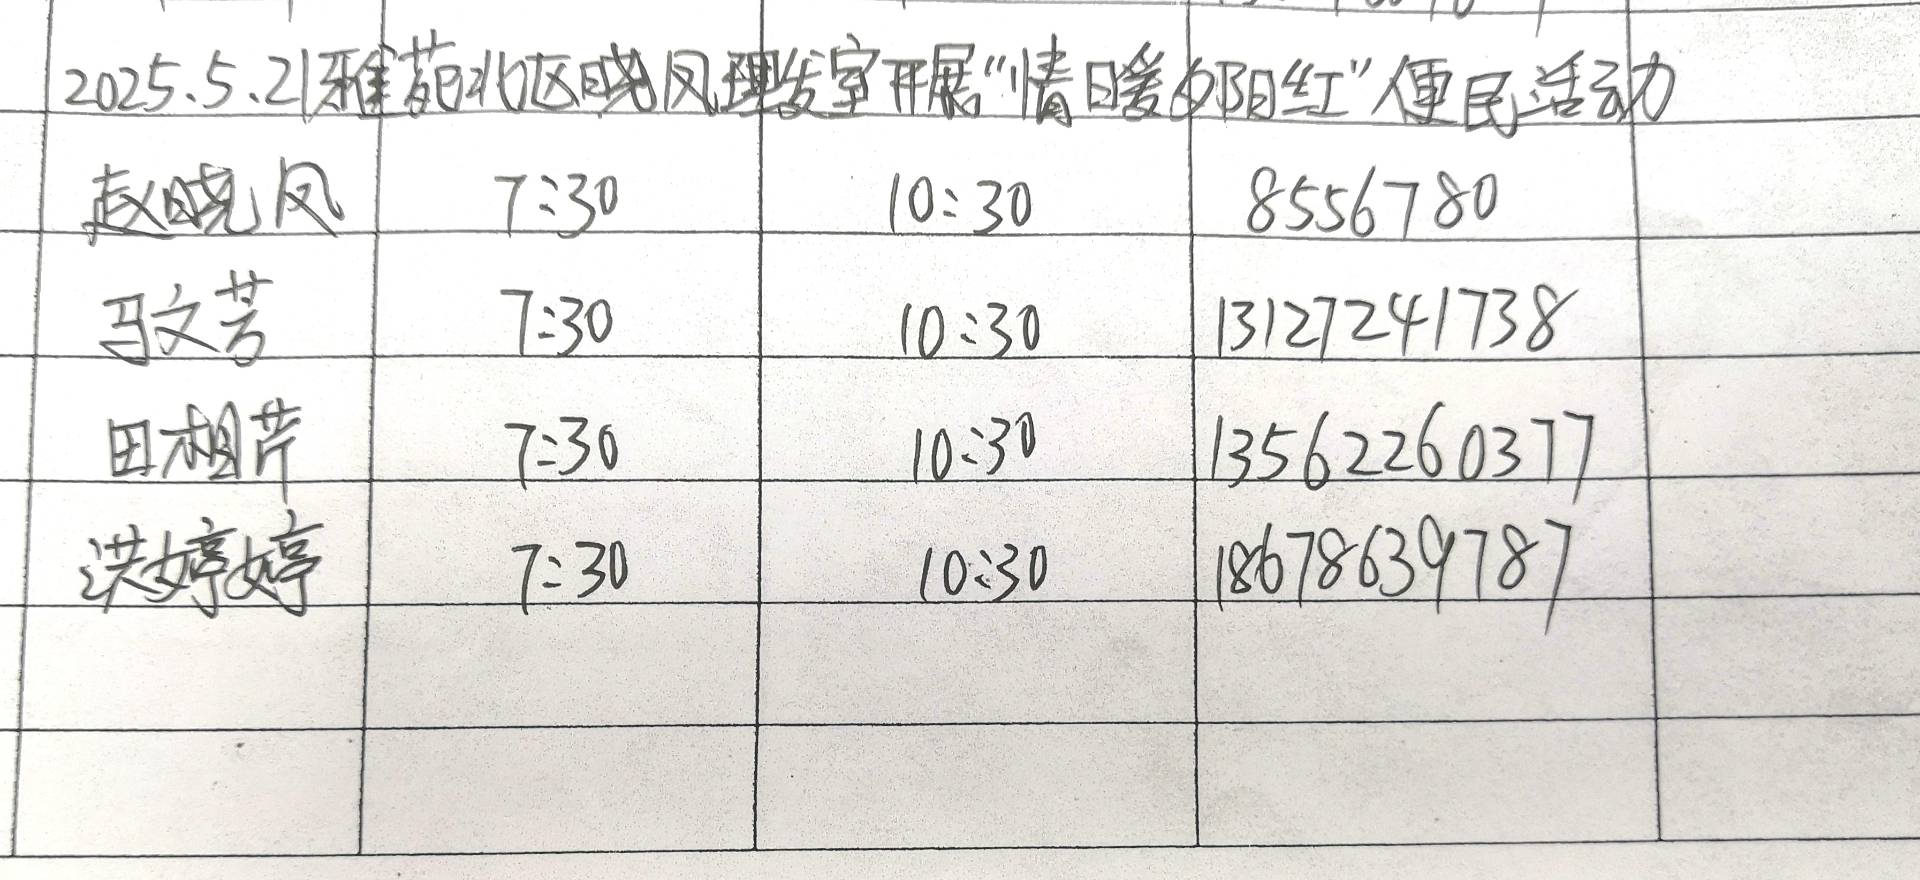 2025.5.21雅苑北区晓凤理发室开展“情日暖夕阳红”便民活动
赵晓凤 7:30 10:30 8556780
马文芳 7:30 10:30 13127241738
田相芹 7:30 10:30 13562260377
洪婷婷 7:30 10:30 18678639787